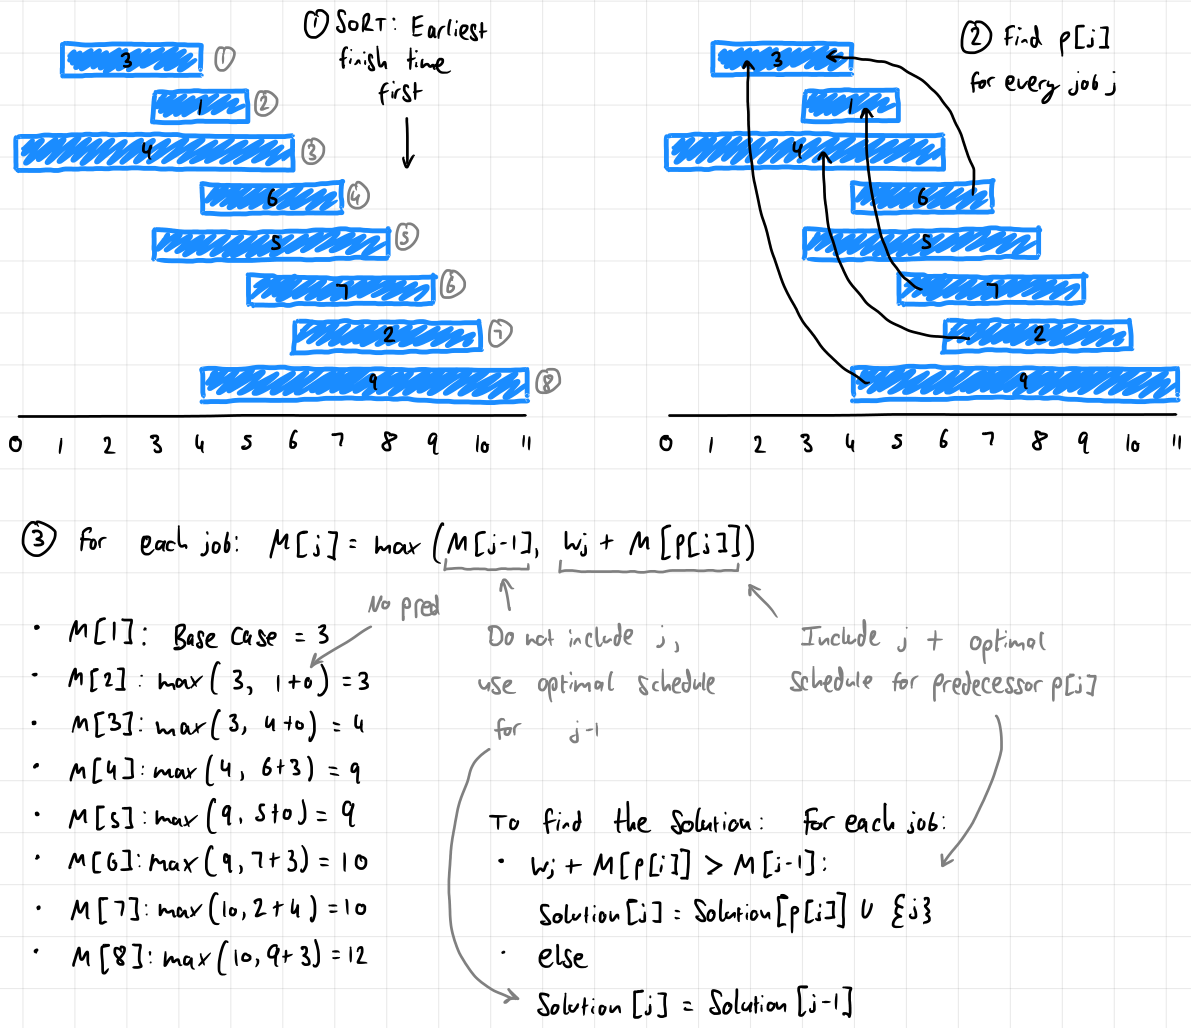 ① SORT: Earliest
finish time
first
3 ①
1 ②
4 ③
6 ④
5 ⑤
7 ⑥
2 ⑦
9 ⑧
0 1 2 3 4 5 6 7 8 9 10 11
② Find p[j]
for every job j
3
1
4
6
5
7
2
9
0 1 2 3 4 5 6 7 8 9 10 11
③ For each job: M[j] = max(M[j-1], wj + M[p[j]])
No pred
Do not include j,
use optimal schedule
for j-1
Include j + optimal
schedule for predecessor p[j]
• M[1]: Base Case = 3
• M[2]: max(3, 1+0) = 3
• M[3]: max(3, 4+0) = 4
• M[4]: max(4, 6+3) = 9
• M[5]: max(9, 5+0) = 9
• M[6]: max(9, 7+3) = 10
• M[7]: max(10, 2+4) = 10
• M[8]: max(10, 9+3) = 12
To find the Solution: For each job:
• wj + M[p[j]] > M[j-1]:
Solution[j] = Solution[p[j]] ∪ {j}
• else
Solution[j] = Solution[j-1]